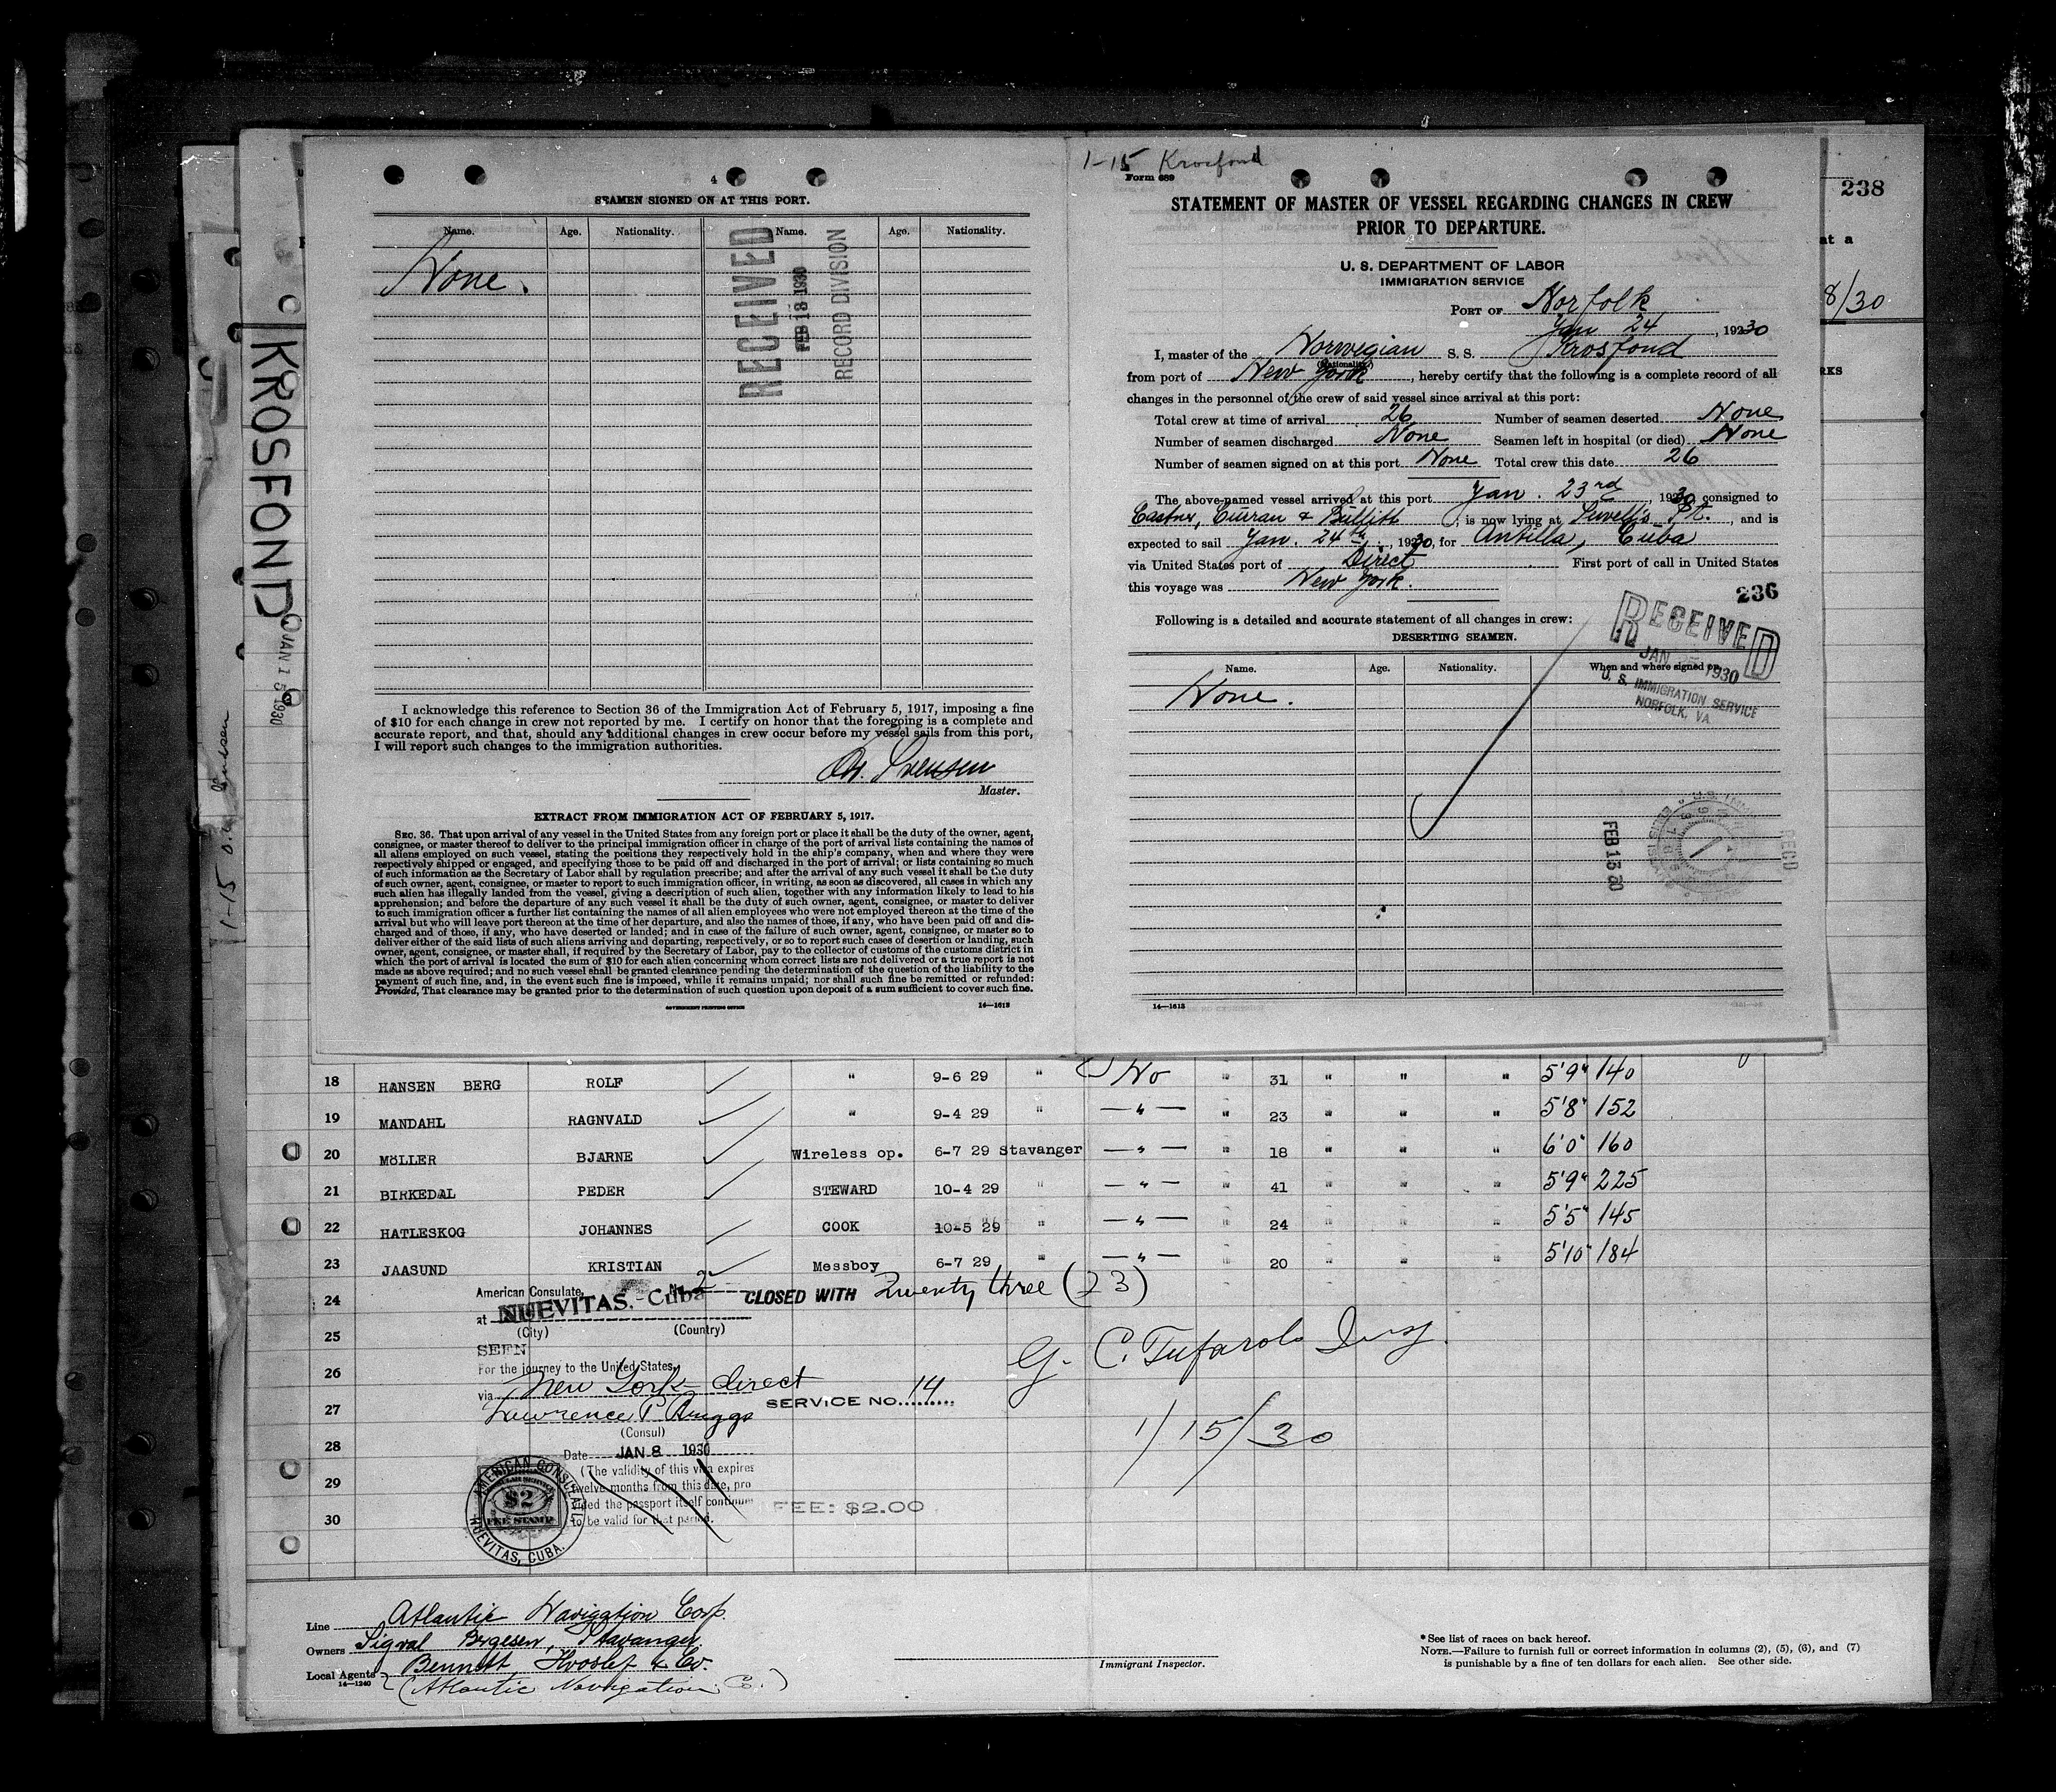 238
at a
8/30
RKS
KROSFOND
JAN 15 1930
1-15
4
SEAMEN SIGNED ON AT THIS PORT.
Name. Age. Nationality. Name. Age. Nationality.
None.
RECEIVED
FEB 18 1930
RECORD DIVISION
I acknowledge this reference to Section 36 of the Immigration Act of February 5, 1917, imposing a fine
of $10 for each change in crew not reported by me. I certify on honor that the foregoing is a complete and
accurate report, and that, should any additional changes in crew occur before my vessel sails from this port,
I will report such changes to the immigration authorities.
Svensen
Master.
EXTRACT FROM IMMIGRATION ACT OF FEBRUARY 5, 1917.
SEC. 36. That upon arrival of any vessel in the United States from any foreign port or place it shall be the duty of the owner, agent,
consignee, or master thereof to deliver to the principal immigration officer in charge of the port of arrival lists containing the names of
all aliens employed on such vessel, stating the positions they respectively hold in the ship's company, when and where they were
respectively shipped or engaged, and specifying those to be paid off and discharged in the port of arrival; or lists containing so much
of such information as the Secretary of Labor shall by regulation prescribe; and after the arrival of any such vessel it shall be the duty
of such owner, agent, consignee, or master to report to such immigration officer, in writing, as soon as discovered, all cases in which any
such alien has illegally landed from the vessel, giving a description of such alien, together with any information likely to lead to his
apprehension; and before the departure of any such vessel it shall be the duty of such owner, agent, consignee, or master to deliver
to such immigration officer a further list containing the names of all alien employees who were not employed thereon at the time of the
arrival but who will leave port thereon at the time of her departure, and also the names of those, if any, who have been paid off and dis-
charged and of those, if any, who have deserted or landed; and in case of the failure of such owner, agent, consignee, or master so to
deliver either of the said lists of such aliens arriving and departing, respectively, or so to report such cases of desertion or landing, such
owner, agent, consignee, or master shall, if required by the Secretary of Labor, pay to the collector of customs of the customs district in
which the port of arrival is located the sum of $10 for each alien concerning whom correct lists are not delivered or a true report is not
made as above required; and no such vessel shall be granted clearance pending the determination of the question of the liability to the
payment of such fine, and, in the event such fine is imposed, while it remains unpaid; nor shall such fine be remitted or refunded:
Provided, That clearance may be granted prior to the determination of such question upon deposit of a sum sufficient to cover such fine.
GOVERNMENT PRINTING OFFICE 14—1613
1-15 Krosfond
Form 689
STATEMENT OF MASTER OF VESSEL REGARDING CHANGES IN CREW
PRIOR TO DEPARTURE.
U. S. DEPARTMENT OF LABOR
IMMIGRATION SERVICE
PORT OF Norfolk
Jan 24, 1930
I, master of the Norwegian S. S. Krosfond
(Nationality)
from port of New York, hereby certify that the following is a complete record of all
changes in the personnel of the crew of said vessel since arrival at this port:
Total crew at time of arrival 26 Number of seamen deserted None
Number of seamen discharged None Seamen left in hospital (or died) None
Number of seamen signed on at this port None Total crew this date 26
The above-named vessel arrived at this port Jan. 23rd, 1930 consigned to
Castner, Curran & Bullitt, is now lying at Sewells Pt., and is
expected to sail Jan. 24th, 1930, for Antilla, Cuba
via United States port of Direct First port of call in United States
this voyage was New York.
236
Following is a detailed and accurate statement of all changes in crew:
DESERTING SEAMEN.
RECEIVED
JAN 1930
U. S. IMMIGRATION SERVICE
NORFOLK, VA
Name. Age. Nationality. When and where signed on.
None.
FEB 13 30
RECD
14—1613
18 HANSEN BERG ROLF " 9-6 29 " No " 31 " " " 5'9" 140
19 MANDAHL RAGNVALD " 9-4 29 " —"— " 23 " " " 5'8" 152
20 MöLLER BJARNE Wireless op. 6-7 29 Stavanger —"— " 18 " " " 6'0" 160
21 BIRKEDAL PEDER STEWARD 10-4 29 " —"— " 41 " " " 5'9" 225
22 HATLESKOG JOHANNES COOK 10-5 29 " —"— " 24 " " " 5'5" 145
23 JAASUND KRISTIAN Messboy 6-7 29 " —"— " 20 " " " 5'10" 184
24
25
26
27
28
29
30
American Consulate, No. 2
at NUEVITAS. Cuba
(City) (Country)
CLOSED WITH Twenty three (23)
SEEN
For the journey to the United States,
via New York direct
SERVICE NO. 14
Lawrence P. Briggs
(Consul)
Date JAN 8 1930
(The validity of this visa expires
twelve months from this date, pro
vided the passport itself continues
to be valid for that period.
FEE: $2.00
AMERICAN CONSULATE
$2
FEE STAMP
NUEVITAS, CUBA.
G. C. Tufarolo Insp.
1/15/30
Line Atlantic Navigation Corp.
Owners Sigval Bergesen, Stavanger.
Local Agents Bennett, Hvoslef & Co.
14—1240
(Atlantic Navigation C.)
Immigrant Inspector.
* See list of races on back hereof.
NOTE.—Failure to furnish full or correct information in columns (2), (5), (6), and (7)
is punishable by a fine of ten dollars for each alien. See other side.